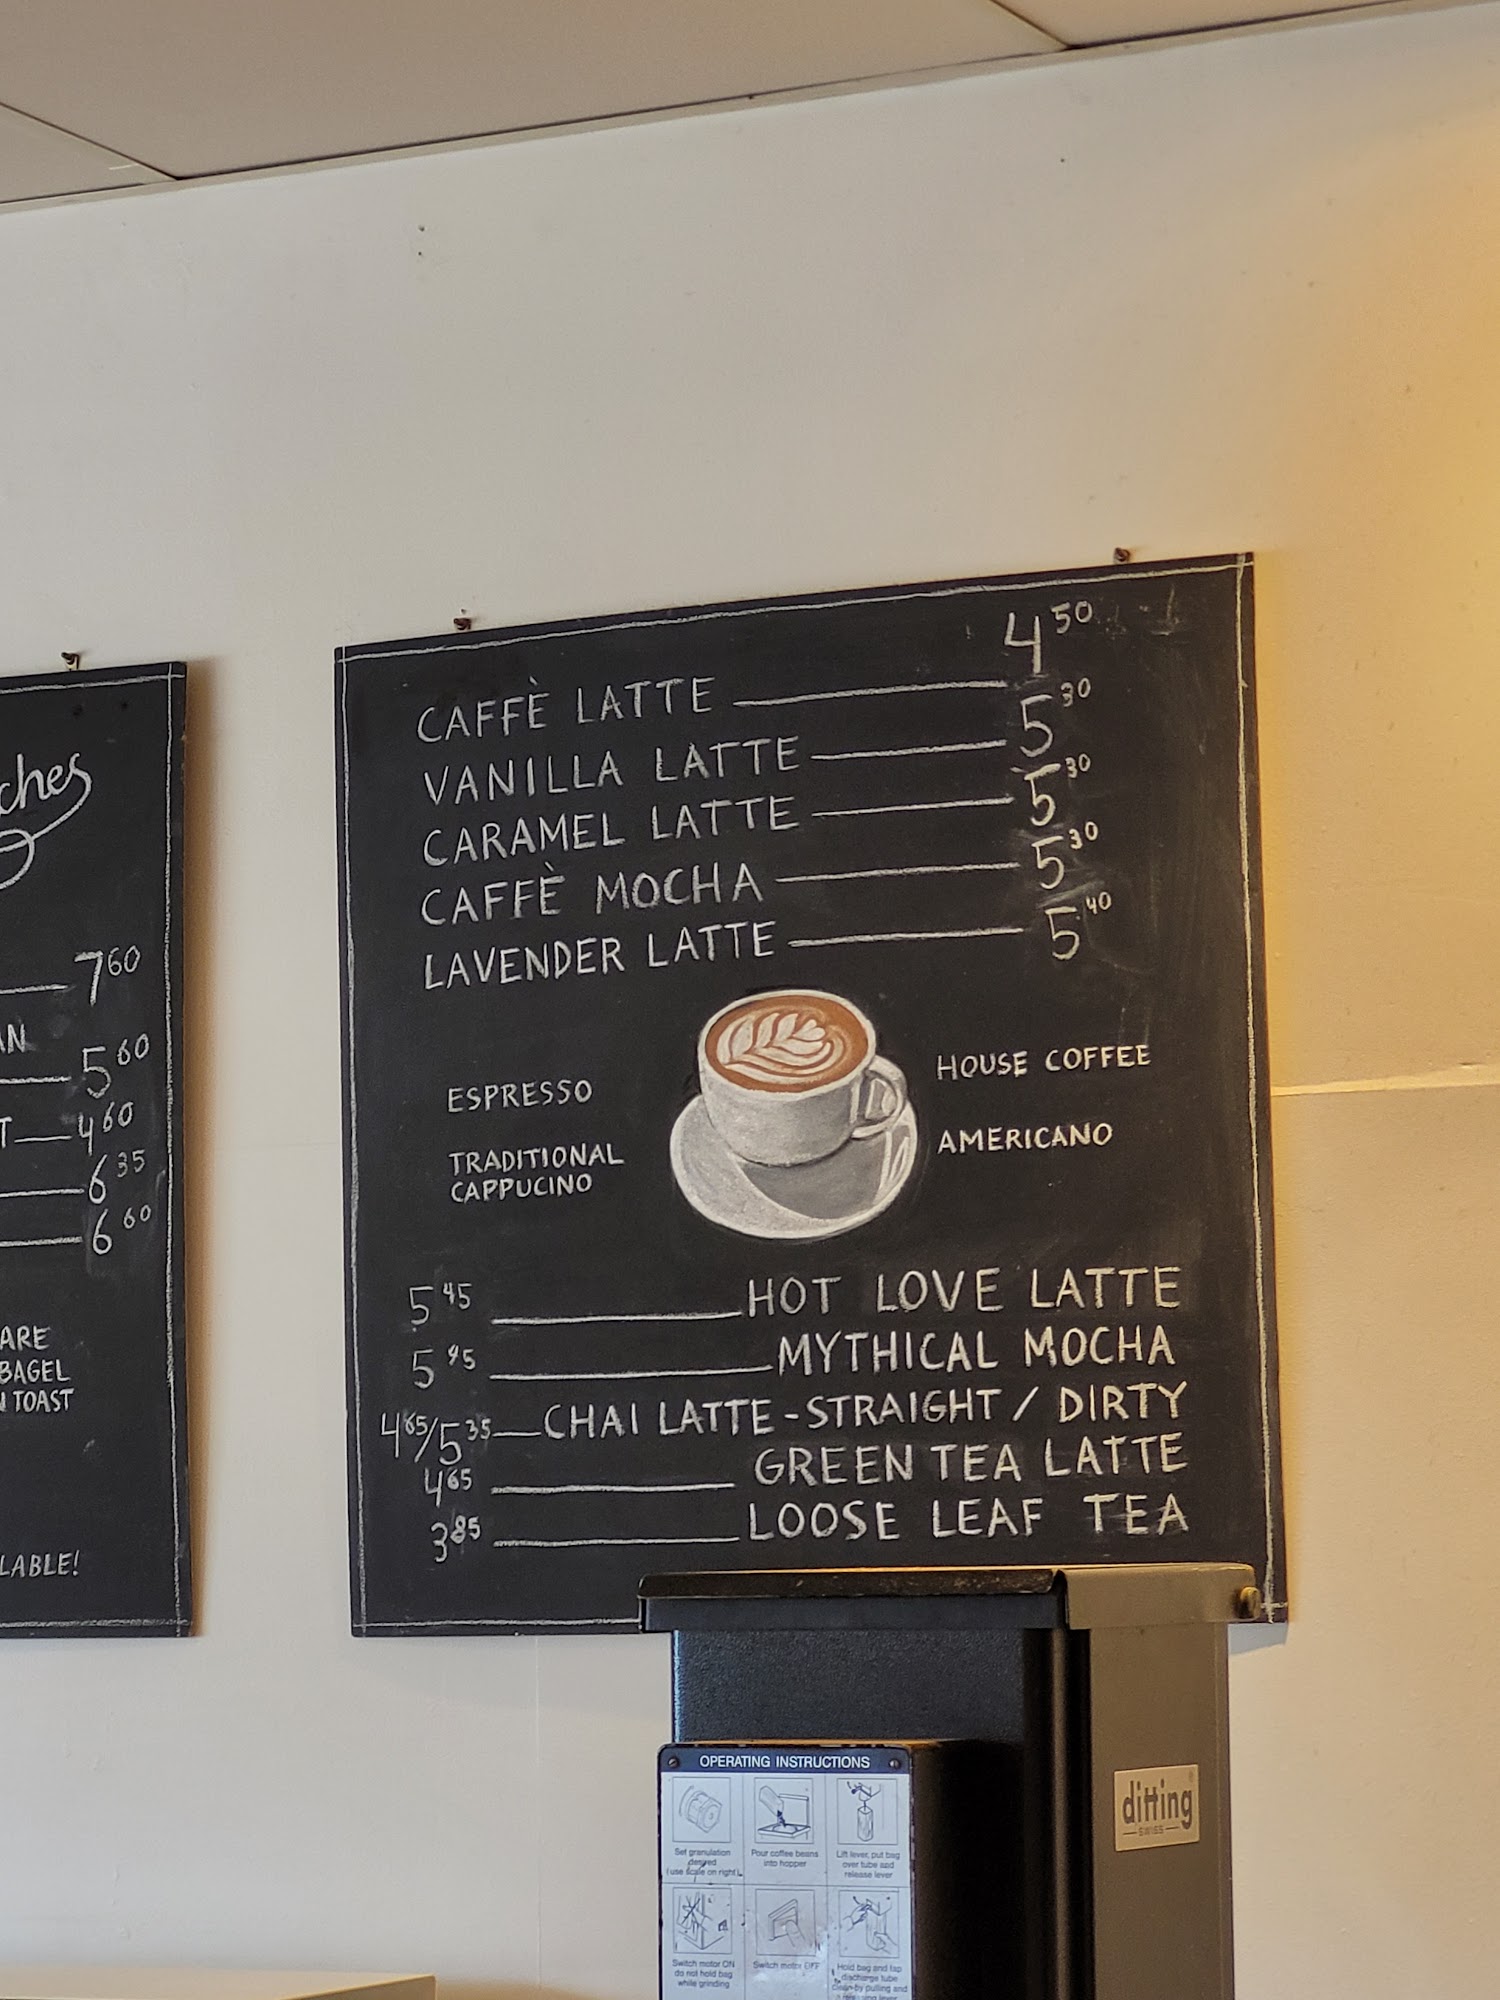 ches
7 60
AN
5 60
T 4 60
6 35
6 60
ARE
BAGEL
N TOAST
LABLE!
CAFFÈ LATTE 4 50
VANILLA LATTE 5 30
CARAMEL LATTE 5 30
CAFFÈ MOCHA 5 30
LAVENDER LATTE 5 40
ESPRESSO
TRADITIONAL
CAPPUCINO
HOUSE COFFEE
AMERICANO
5 45 HOT LOVE LATTE
5 45 MYTHICAL MOCHA
4 65/5 35 CHAI LATTE - STRAIGHT / DIRTY
4 65 GREEN TEA LATTE
3 85 LOOSE LEAF TEA
OPERATING INSTRUCTIONS
Set granulation
desired
(use scale on right)
Pour coffee beans
into hopper
Lift lever, put bag
over tube and
release lever
Switch motor ON
do not hold bag
while grinding
Switch motor OFF
Hold bag and tap
discharge tube
clean by pulling and
ditting
SWISS